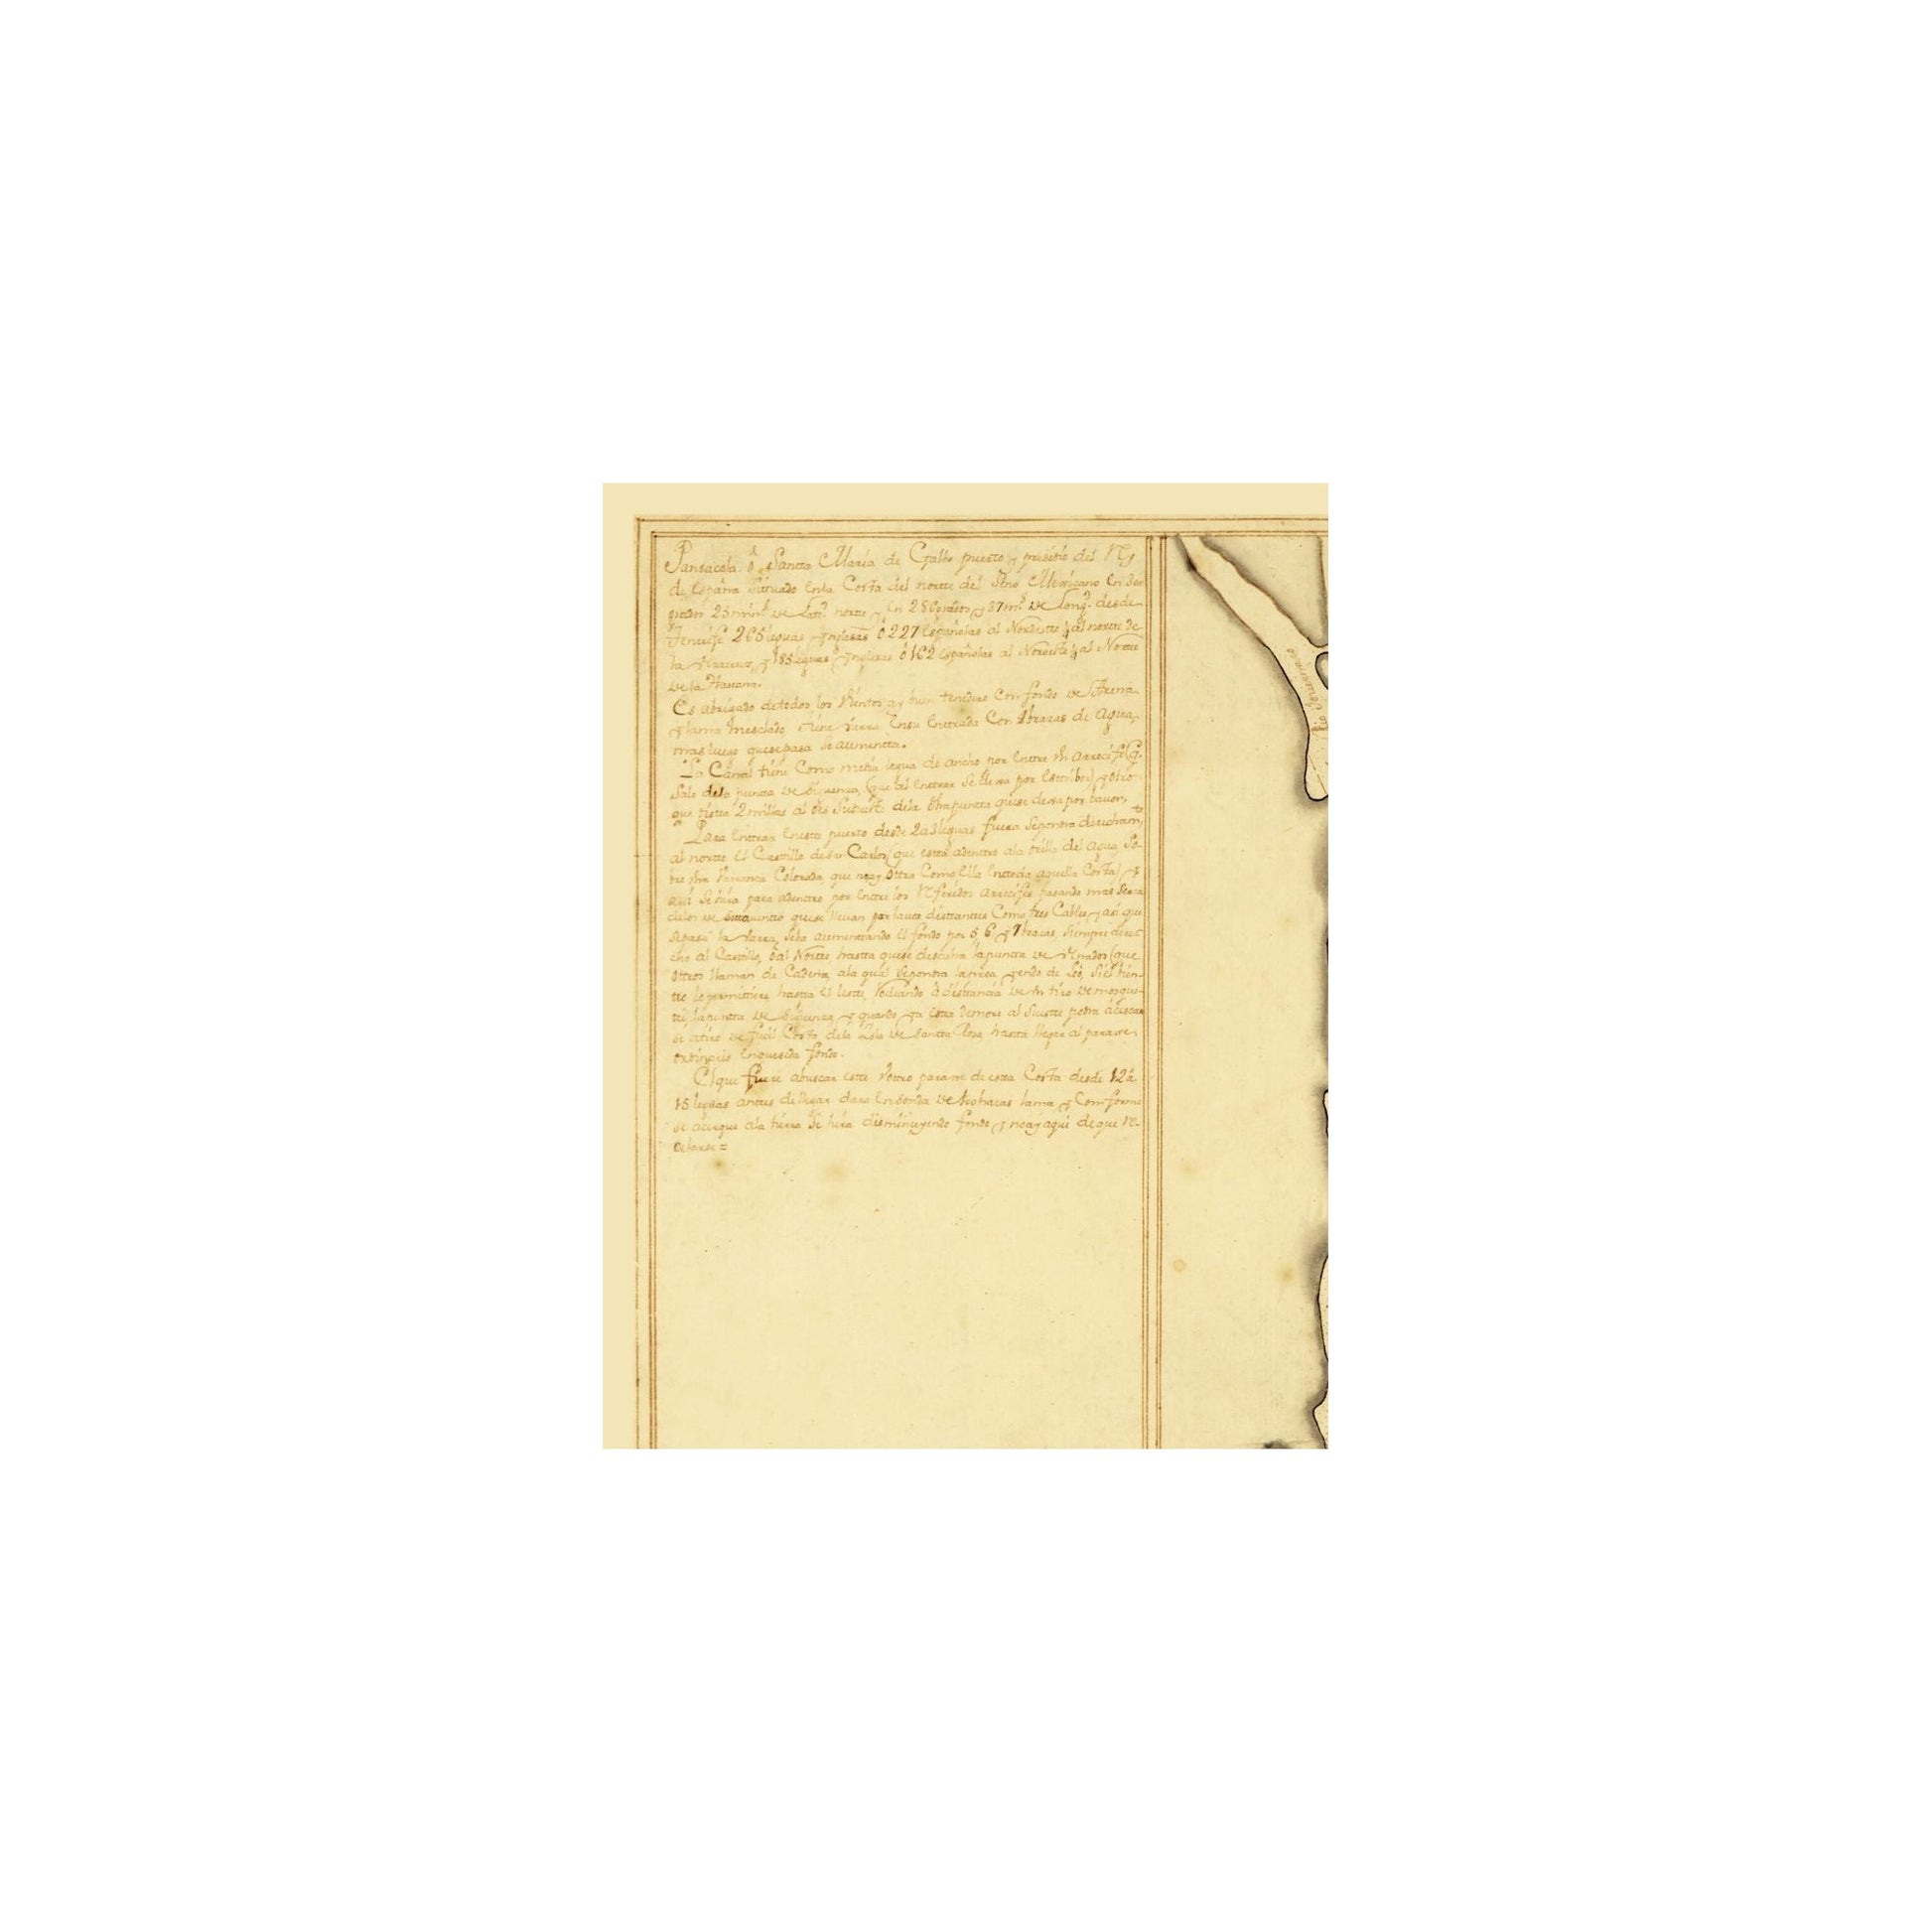 Pansacola ô Santta María de Galbe puerto y presidio del Rey
de España situado en la Costa del nortte del Seno Mexicano en 30
grados 25 min.s de Latt.d nortte y en 286 grados y 37 m.s de Long.d desde
Tenerife 265 leguas Ynglesas ô 227 españolas al Nordeste ¼ al nortte de
la Veracruz, y 185 leguas Ynglesas ô 162 españolas al Noroeste ¼ al Nortte
de la Havana.
Es abrigado de todos los Vientos ay buen tenedero Con fondo de Arena
y lama mesclado tiene varra en su enttrada Con brazas de agua,
mas luego que se pasa se aumentta.
La Canal tiene Como media legua de ancho por enttre Vn arrecife (q.
sale dela puntta de Siguenza, (que al enttrar se dexa por esttribor) y otro
que distta 2 millas al Oes Suduest dela otra puntta que se dexa por bavor,
Para enttrar en estte puertto desde 2 a 3 leguas fuera se pondra derecham.te
al nortte el Casttillo de San Carlos (que estta adenttro a la orilla del agua so-
bre Vna varranca Colorada, que no ay ottra Como ella en ttoda aquella Costa) y
asi se hira para adenttro por enttre los Referidos arrecifes pasando mas serca
delos de que se llevan por disttantes Como tres Cables y asi que
se pasa la varra, se ba aumenttando el fondo por 5, 6, y 7 brazas, siempre dere-
cho al Casttillo, ô al Nortte hastta que se descubra la puntta de Venados (que
ottros llaman de Cadena, a la qual se pondra la proa yendo de Loò, si el bien-
tto le permittiere hastta el lestte, ô disttancia de Vn tiro de mosque-
te, la puntta de Siguenza, y quando ya estta demore al Suestte podra acercar
se a tiro de fusil Corto, dela Isla de Santta Rosa, hastta llegar al parage
ordinario en que se da fondo.
El que fuere a buscar estte Vottro parage de estta Costa desde 12 a
15 leguas anttes de llegar dara en sonda de brazas lama y Comforme
se acerque a la tierra se hira disminuyendo fondo y no ay aqui de que Re-
celarse =
Rio